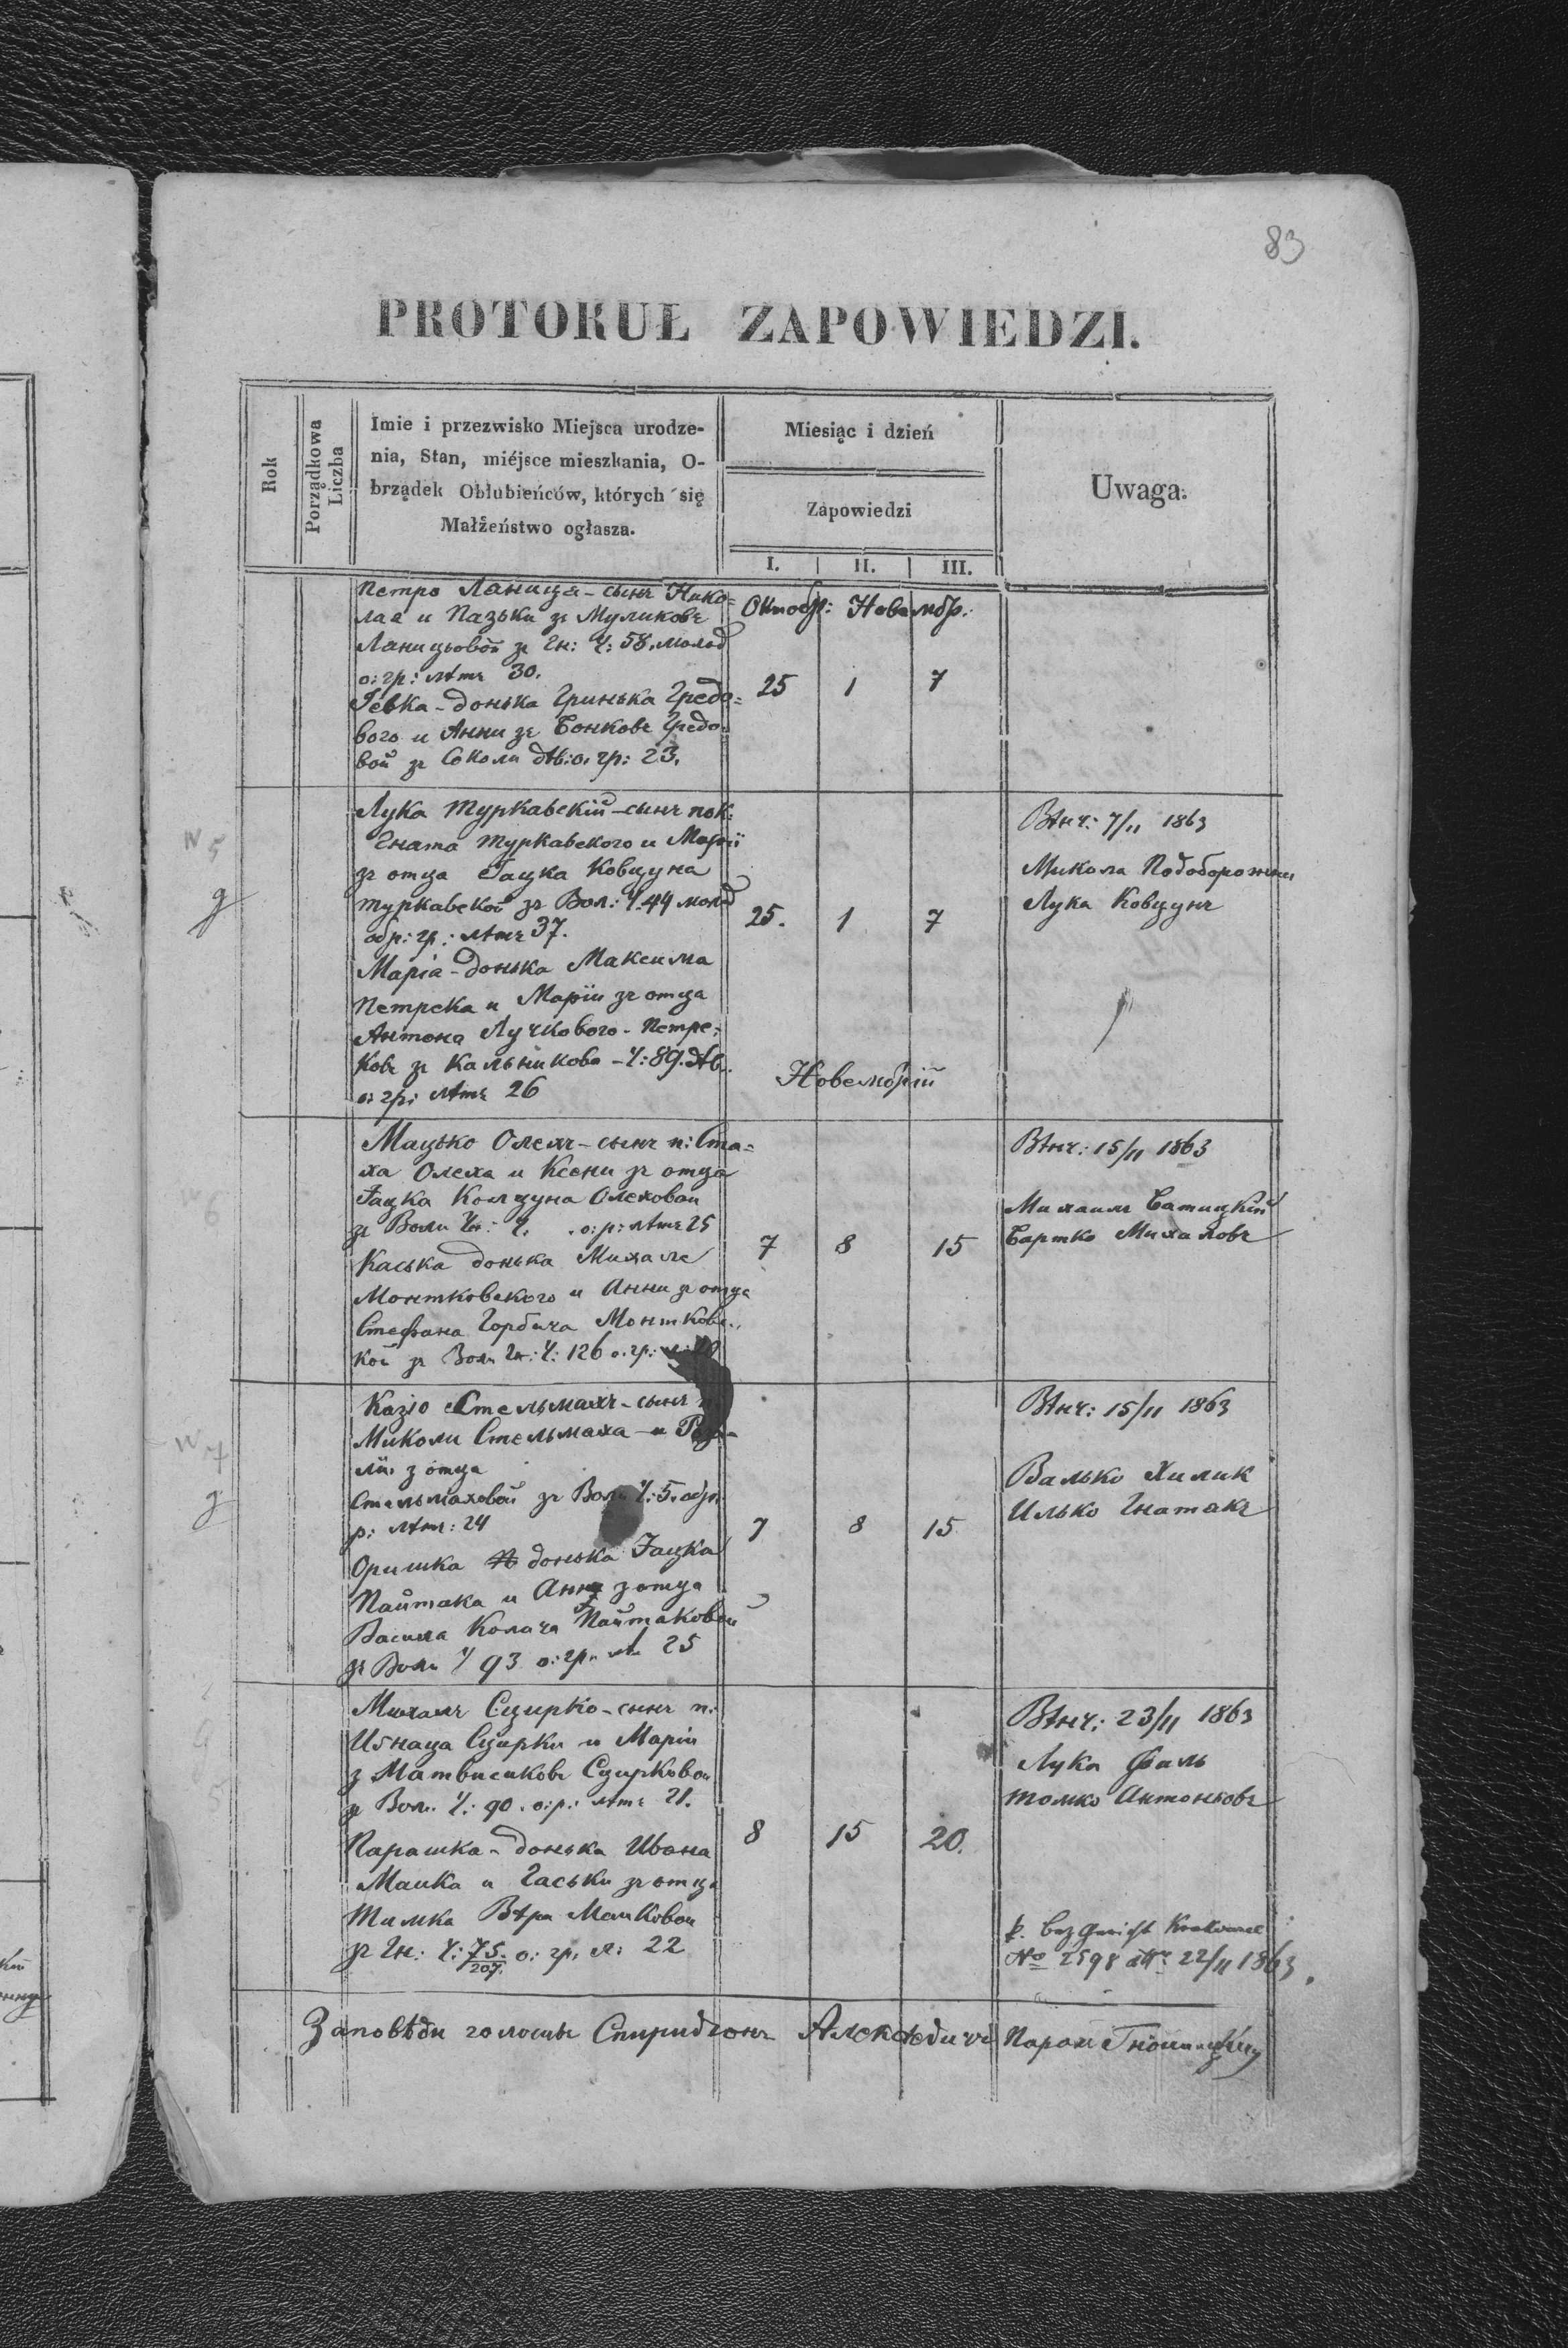 83
PROTOKUŁ ZAPOWIEDZI.
Rok
Porządkowa Liczba
Imie i przezwisko Miejsca urodze-
nia, Stan, miéjsce mieszkania, O-
brządek Obłubieńców, których się
Małżeństwo ogłasza.
Miesiąc i dzień
Zapowiedzi
I. II. III.
Uwaga.
Петро Ланица - сынъ Нико=
лая и Пазьки зъ Муликовъ
Ланицьовой зъ Гн: Ч: 58. молод
о: гр: лѣтъ 30.
Октобр: Новембр:
25 1 7
Евка - донька Гринька Гредо=
вого и Анни зъ Бонковъ Гредо-
вой зъ Соколи дѣв: о: гр: 23.
N 5
g
Лука Туркавскій - сынъ пок:
Гната Туркавского и Маріи
зъ отца Яцка Ковцуна
Туркавской зъ Вол: Ч. 44 молод
обр: гр: лѣтъ 37.
Маріа - донька Максима
Петрека и Маріи зъ отца
Антона Лучкового - Петре:
ковъ зъ Кальникова - Ч: 89. дѣв:
о: гр: лѣтъ 26
25. 1 7
Вѣнч: 7/11 1863
Микола Подоборожни
Лука Ковцунъ
Новембрій
6
Мацько Олехъ - сынъ п: Ста=
ха Олеха и Ксени зъ отца
Яцка Колцуна Олеховой
зъ Воли Гн: Ч: . о: р: лѣтъ 25
Каська донька Михале
Монтковского и Анни зъ отца
Стефана Горбича Монтковс.
кой зъ Воли Гн: Ч: 126 о: гр:
7 8 15
Вѣнч: 15/11 1863
Михаилъ Батицкій
Бартко Михаловъ
N 7
g
Казіо Стельмахъ - сынъ
Миколи Стельмаха - и Роза-
лии з отца
Стельмаховой зъ Воли Ч: 5. обр:
р: лѣтъ: 24
Оришка донька Яцка
Пайтака и Анни з отца
Василя Колача Пайтаковой
зъ Воли Ч 93 о: гр: лѣ 25
7 8 15
Вѣнч: 15/11 1863
Валько Хилик
Илько Гнатакъ
Михаилъ Сцирко - сынъ п:
Игнаца Сцирки и Маріи
з Матвисиковъ Сцирковой
зъ Вол: Ч: 90. о: р: лѣтъ 21.
Парашка - донька Ивана
Маика и Гаськи зъ отца
Тимка Вѣра Маиковои
зъ Гн: Ч: 75. о: гр: л: 22
207.
8 15 20.
Вѣнч: 23/11 1863
Лука Филь
Томко Антоньовъ
k. Bezgericht Krakowec
No 2598 22/11 1863.
Заповѣди голосивъ Спиридіонъ Алексѣевичъ Парохъ Гноиницкiй